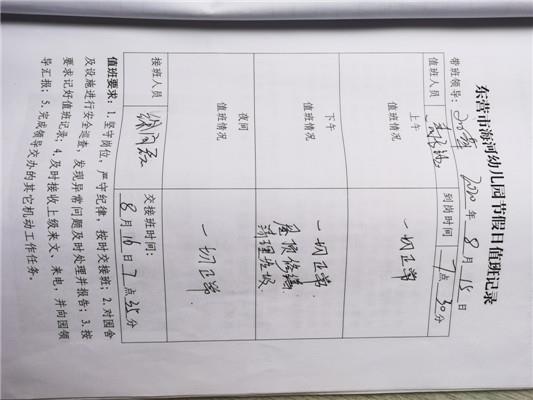 东营市海河幼儿园节假日值班记录
带班领导： 2020年 8月 15日
值班人员 到岗时间 7点30分
上午
值班情况 一切正常
下午
值班情况 一切正常
屋顶修缮
清理垃圾
夜间
值班情况 一切正常
接班人员 交接班时间：
8月16日7点35分
值班要求：1.坚守岗位，严守纪律，按时交接班；2.对园舍
及设施进行安全巡查，发现异常问题及时处理并报告；3.按
要求记好值班记录；4.及时接收上级来文、来电，并向园领
导汇报；5.完成领导交办的其它机动工作任务。